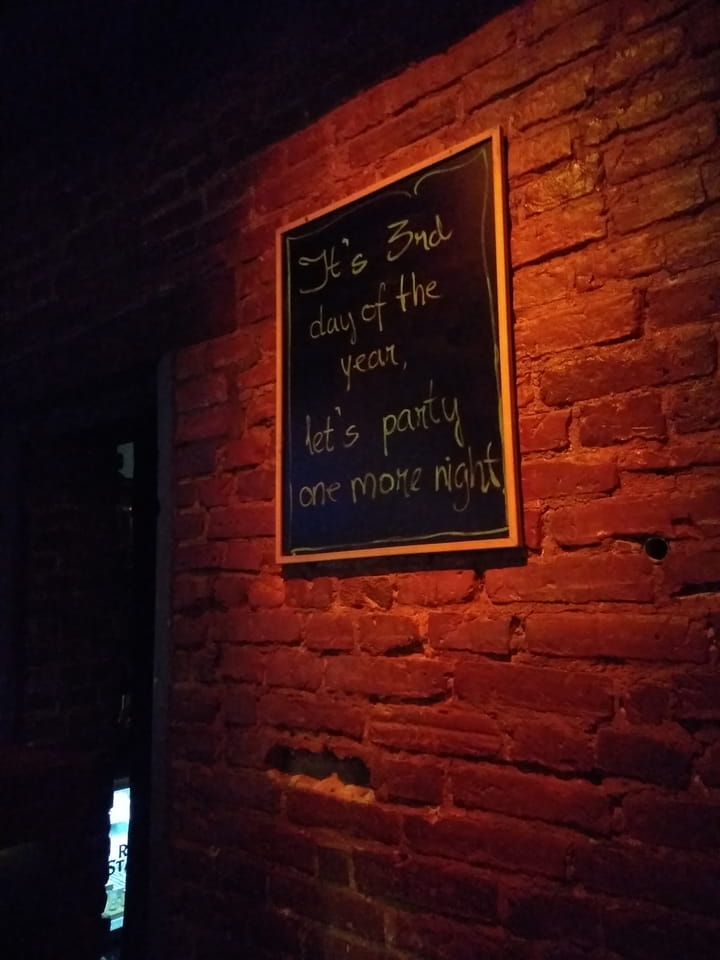 It's 3rd
day of the
year,
let's party
one more night